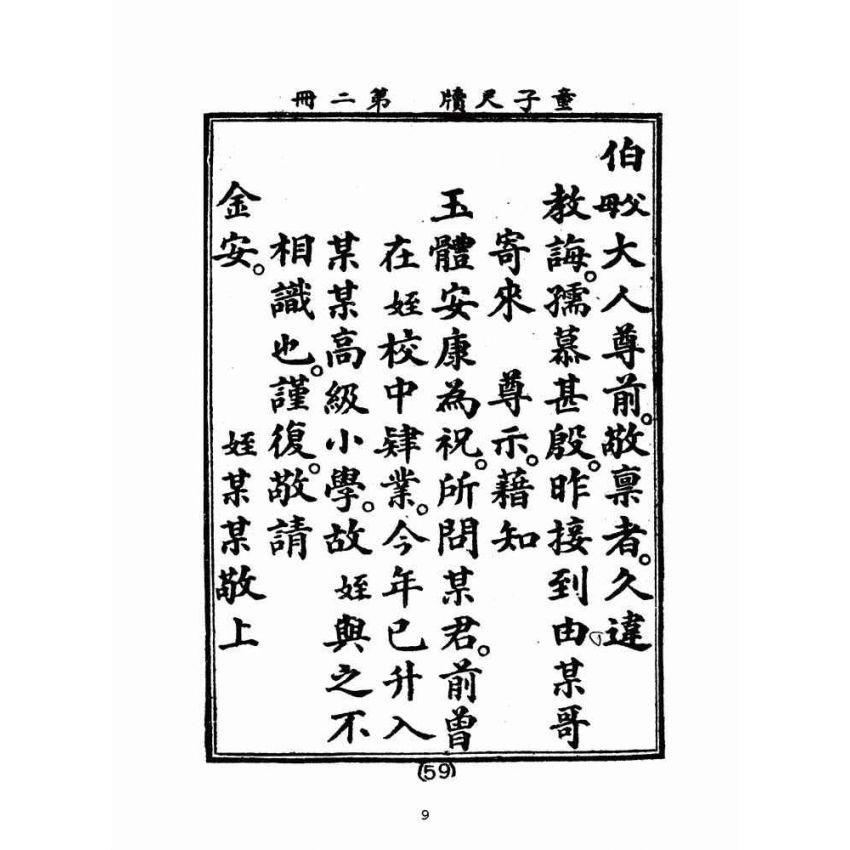 童子尺牘 第二冊
伯父母大人尊前。敬稟者。久違
教誨。孺慕甚殷。昨接到由某哥
寄來 尊示。藉知
玉體安康為祝。所問某君。前曾
在姪校中肄業。今年已升入
某某高級小學。故姪與之不
相識也。謹復。敬請
金安。 姪某某敬上
(59)
9